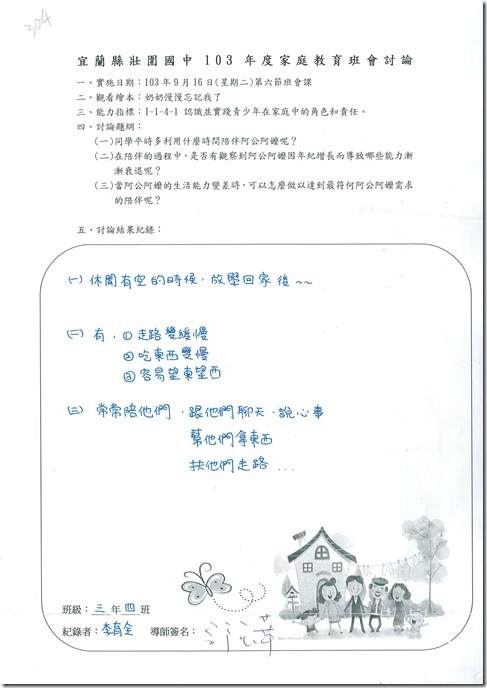 304
宜蘭縣壯圍國中 103 年度家庭教育班會討論
一、實施日期：103年9月16日(星期二)第六節班會課
二、觀看繪本：奶奶慢慢忘記我了
三、能力指標：1-1-4-1 認識並實踐青少年在家庭中的角色和責任。
四、討論題綱：
(一)同學平時多利用什麼時間陪伴阿公阿嬤呢？
(二)在陪伴的過程中，是否有觀察到阿公阿嬤因年紀增長而導致哪些能力漸
漸衰退呢？
(三)當阿公阿嬤的生活能力變差時，可以怎麼做以達到最符何阿公阿嬤需求
的陪伴呢？
五、討論結果紀錄：
(一) 休閒有空的時候，放學回家後~~
(二) 有，①走路變緩慢
②吃東西變慢
③容易望東望西
(三) 常常陪他們，跟他們聊天、說心事
幫他們拿東西
扶他們走路...
班級：三年四班
紀錄者：李育全 導師簽名：